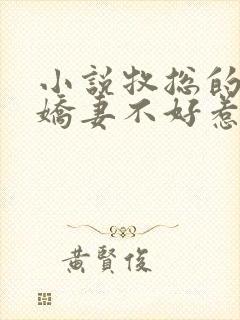 小説牧総的
嬌妻不好惹
黃賢俊